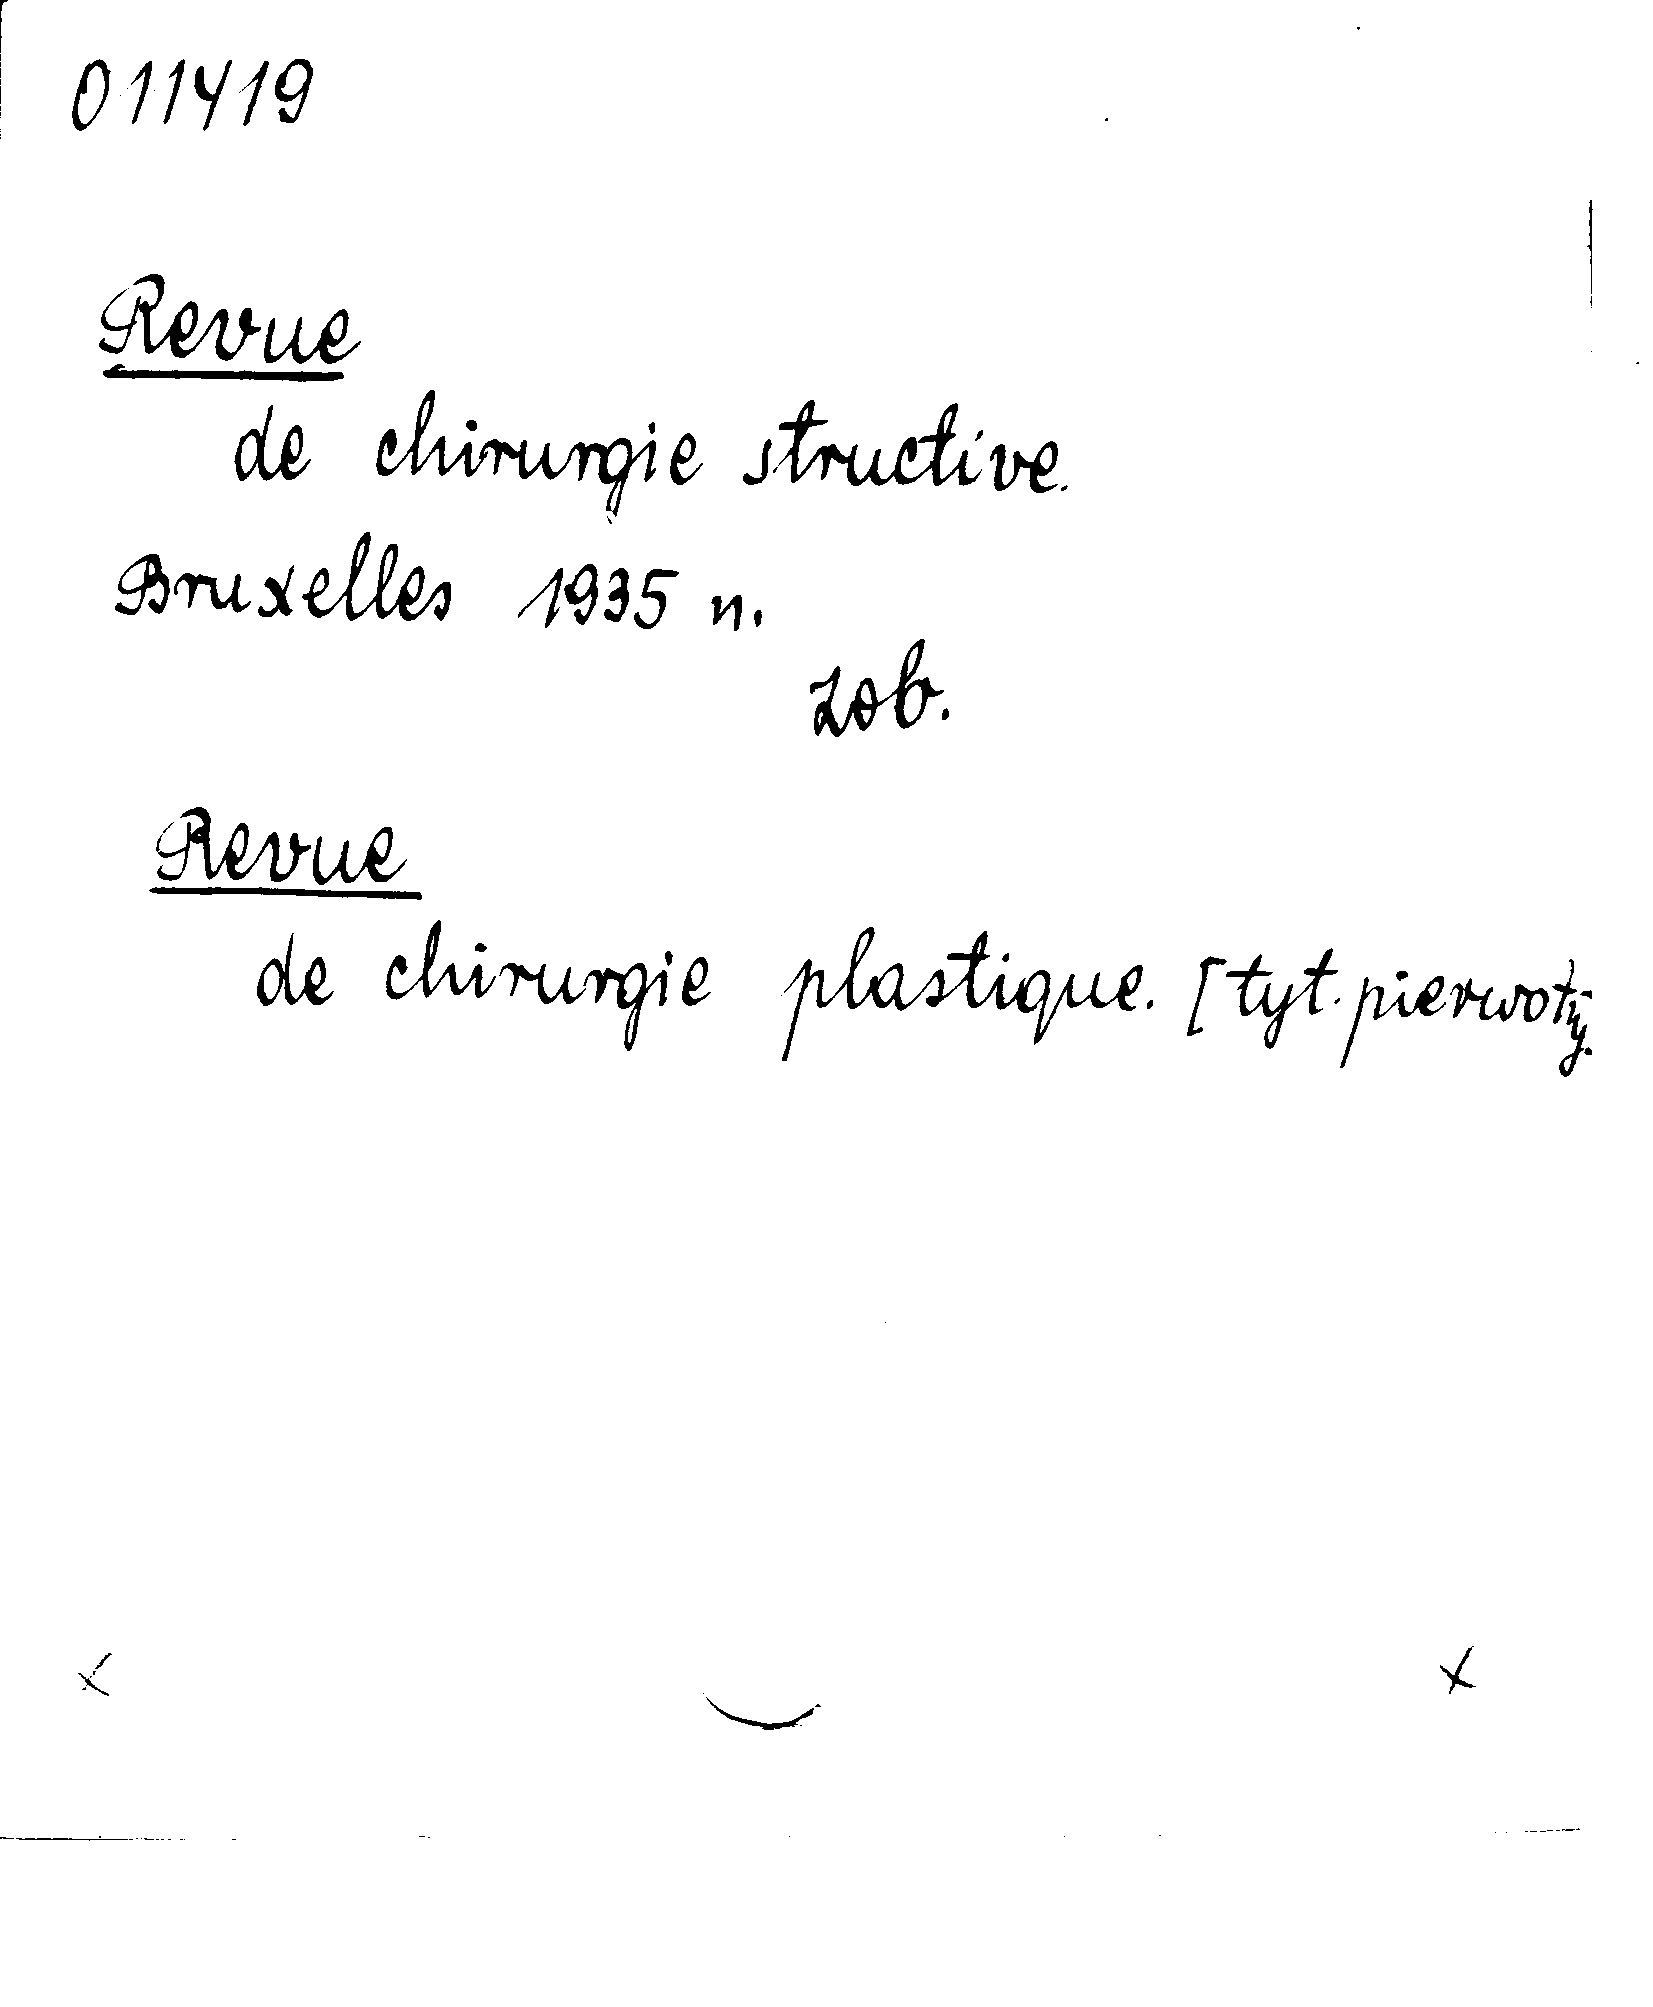 011419
Revue
de chirurgie structive.
Bruxelles 1935 n.
zob.
Revue
de chirurgie plastique. [tyt. pierwotny.